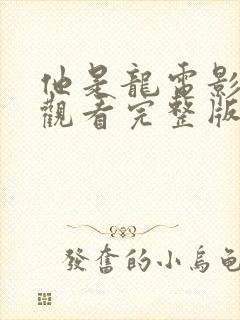 他是龍電影
觀看完整版
發奮的小烏龜